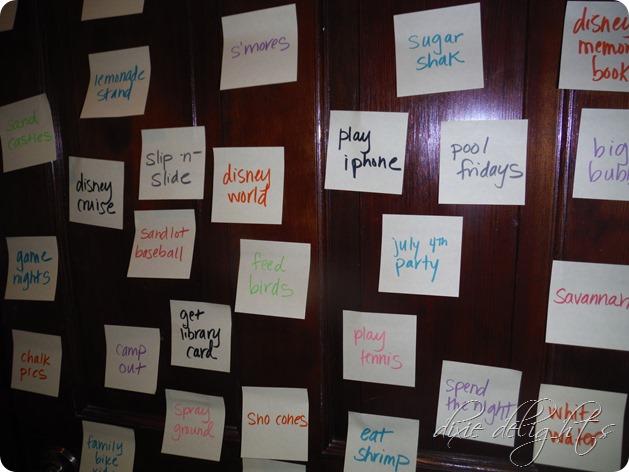 s'mores
sugar
shak
disney
memory
book
lemonade
stand
sand
castles
slip 'n-
slide
play
iphone
pool
fridays
big
disney
cruise
disney
world
sandlot
baseball
july 4th
party
game
nights
feed
birds
savannah
get
library
card
chalk
pics
camp
out
play
tennis
spend
the night
white
water
spray
ground
sno cones
eat
shrimp
family
bike
dixie delights